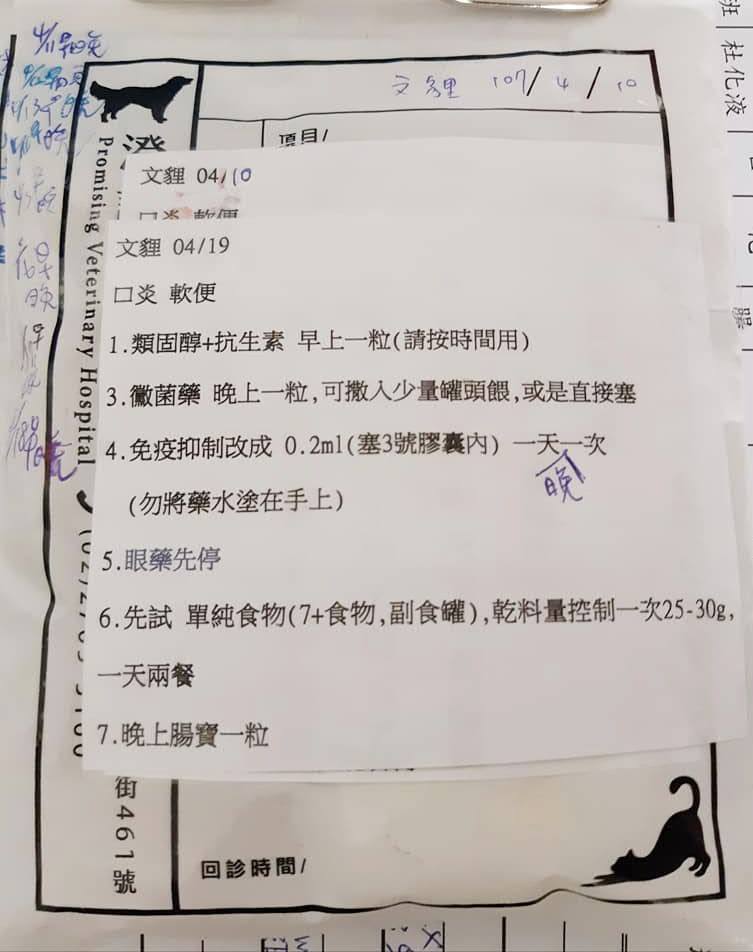 班 杜化液
文貍 107/4/10
澄
Promising Veterinary Hospital
項目/
文貍 04/10
口炎 軟便
文貍 04/19
口炎 軟便
1.類固醇+抗生素 早上一粒(請按時間用)
3.黴菌藥 晚上一粒,可撒入少量罐頭餵,或是直接塞
4.免疫抑制改成 0.2ml(塞3號膠囊內) 一天一次
晚
(勿將藥水塗在手上)
5.眼藥先停
6.先試 單純食物(7+食物,副食罐),乾料量控制一次25-30g,
一天兩餐
7.晚上腸寶一粒
街461號
回診時間/